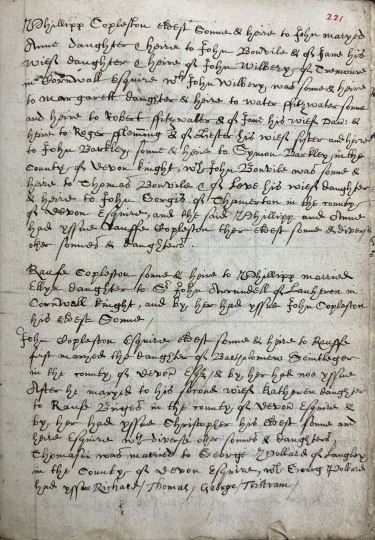 221
Phillipp Copleston eldest Sonne & heire to John maryed
Anne daughter & heire to John Bonvile & of Jane his
wief daughter & heire of John Wilbery of
in Cornwall Esquire wch John Wilbery was sonne & heire
to Margarett daughter & heire to water ffitzwater sonne
and heire to Robert ffitzwalter & of Jane his wief Dau: &
heire to Roger fleming & of his wief sister and heire
to John Barkley sonne & heire to Symon Barkley in the
County of Devon knight, wch John Bonvile was sonne &
heire to Thomas Bonvile & of his wief daughter
& heire to John Gorges of Tamerton in the county
of Devon Esquire, and the said Phillipp and Anne
had yssue Rauffe Copleston ther eldest sonne & divers
other sonnes & daughters.
Raufe Copleston sonne & heire to Phillipp married
Ellyn daughter to Sr John Arrundell of Lanheron in
Cornwall knight, and by her had yssue John Copleston
his eldest Sonne.
John Copleston Esquire eldest sonne & heire to Rauffe
first maryed the daughter of Barthomew Sentleger
in the county of Devon & by her had noe yssue
After he maryed to his second wief Katheren daughter
to Raufe Briges in the county of Devon Esquire &
by her had yssue Christopher his eldest sonne and
heire Esquire wth diverse other sonnes & daughters,
Thomasin was married to George Pollard of Langley
in the County of Devon Esquire, wch Georg Pollard
had yssue Richard / Thomas / George / Tristram /